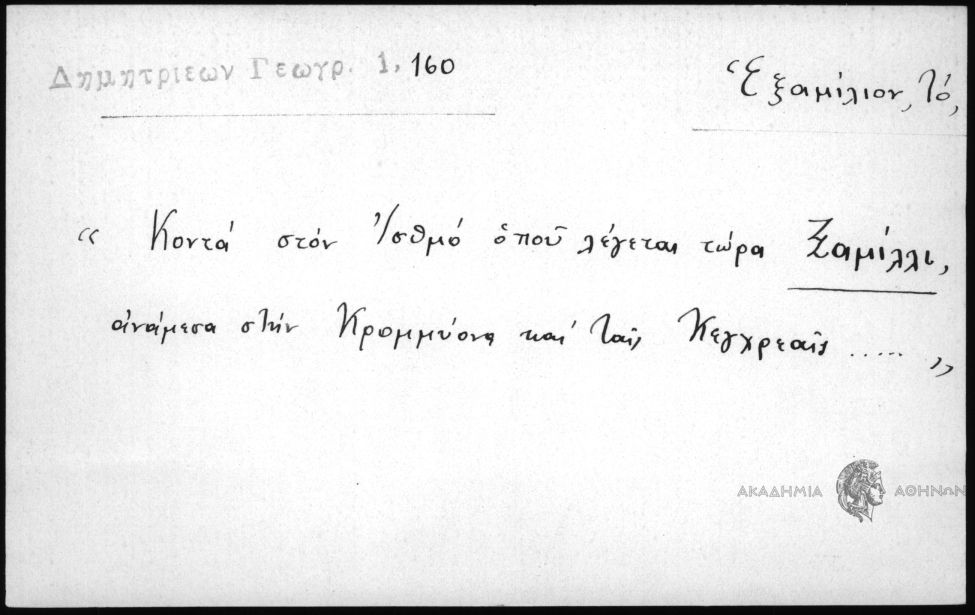 Δημητριέων Γεωγρ. 1, 160
Ἑξαμίλιον, τό,
“ Κοντά στόν Ἰσθμό ὁποῦ λέγεται τώρα Ξαμίλλι,
ἀνάμεσα στήν Κρομμύονα καί ταῖς Κεγχρεαῖς ..... „
ΑΚΑΔΗΜΙΑ ΑΘΗΝΩΝ